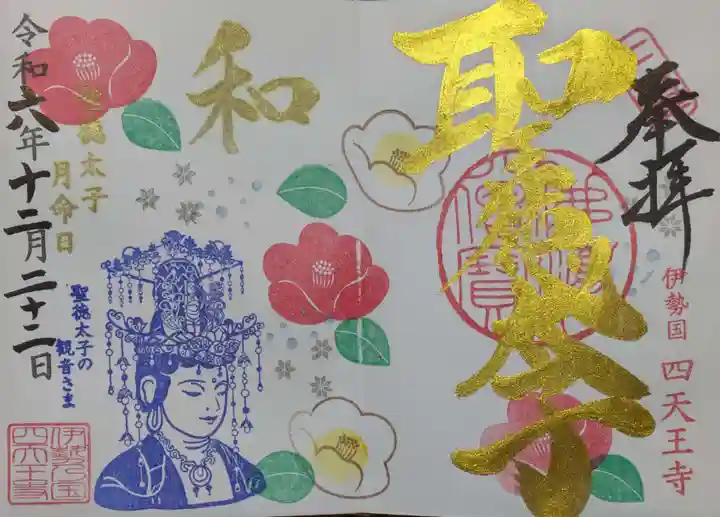 奉拝
聖徳太子
佛法僧寶
伊勢国 四天王寺
和
聖徳太子
月命日
令和六年十二月二十二日
聖徳太子の
観音さま
伊勢国
四天王寺